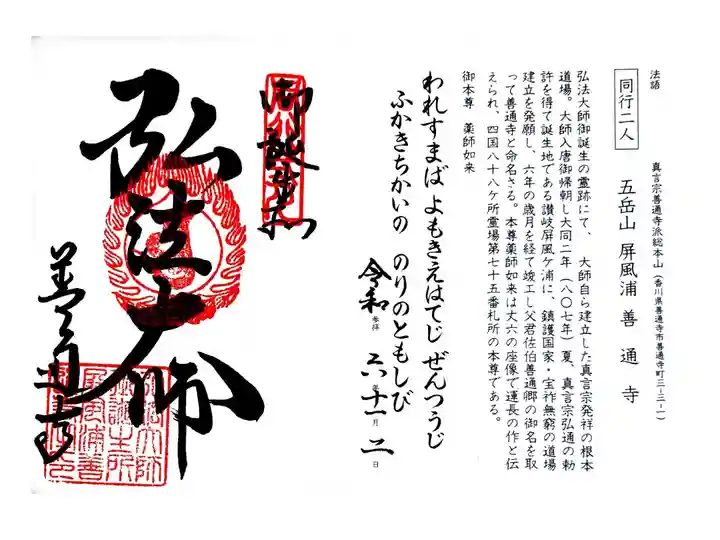 法語
真言宗善通寺派総本山（香川県善通寺市善通寺町三ー三ー一）
同行二人
五岳山 屏風浦 善通寺
弘法大師御誕生の霊跡にて、 大師自ら建立した真言宗発祥の根本
道場。大師入唐御帰朝し大同二年（八〇七年）夏、真言宗弘通の勅
許を得て誕生地である讃岐屏風ケ浦に、鎮護国家・宝祚無窮の道場
建立を発願し、六年の歳月を経て竣工し父君佐伯善通卿の御名を取
って善通寺と命名さる。本尊薬師如来は丈六の座像で運長の作と伝
えられ、四国八十八ケ所霊場第七十五番札所の本尊である。
御本尊 薬師如来
われすまば よもきえはてじ ぜんつうじ
ふかきちかいの のりのともしび
令和六年十一月二日
参拝
御誕生所
弘法大師
善通寺
弘法大師
御誕生所
屏風浦善